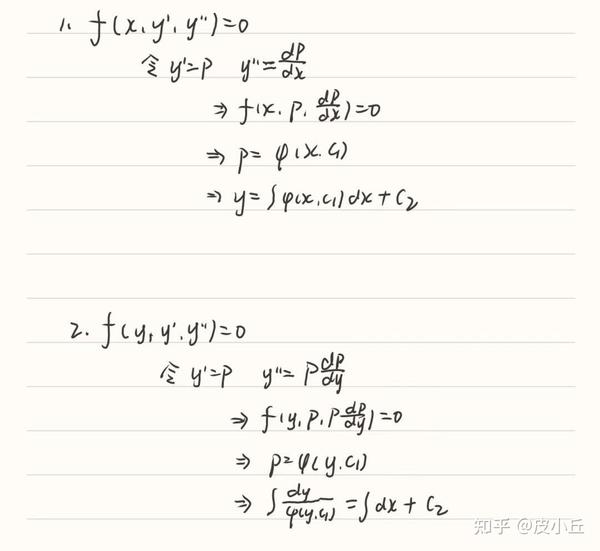 1. f(x, y', y'')=0
令 y'=p y''=dp/dx
⇒ f(x, p, dp/dx)=0
⇒ p= φ(x, c₁)
⇒ y=∫φ(x, c₁)dx+C₂
2. f(y, y', y'')=0
令 y'=p y''= p dp/dy
⇒ f(y, p, p dp/dy)=0
⇒ p=φ(y, c₁)
⇒ ∫ dy/φ(y, c₁) =∫dx+C₂
知乎 @皮小丘